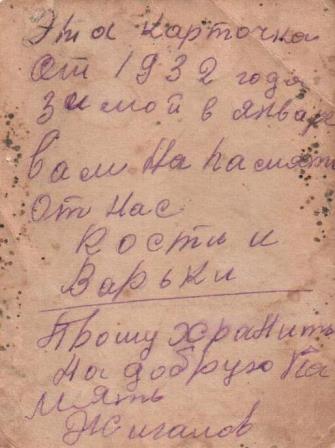 Эта карточка
От 1932 года
зимой в январе
вам на память
От нас
Кости и
Варьки
Прошу хранить
на добрую па
мять
Жигалов